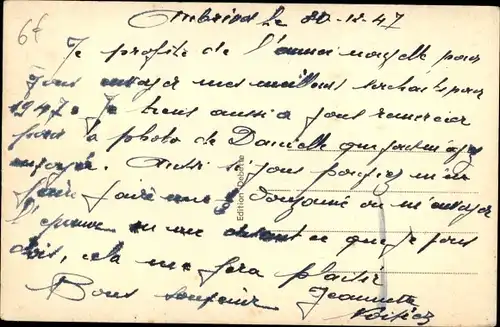 6f
le 20-12-47
Je profite de l'année nouvelle pour
vous envoyer mes meilleurs souhaits pour
1947. Je tiens aussi a vous remercier
pour la photo de Danielle que vous m'avez
envoyée. Aussi si vous pouviez m'en
faire faire une douzaine ou m'envoyer
l'epreuve en me disant ce que je vous
dois, cela me fera plaisir
Bons souvenir Jeannette
Edition Debarte